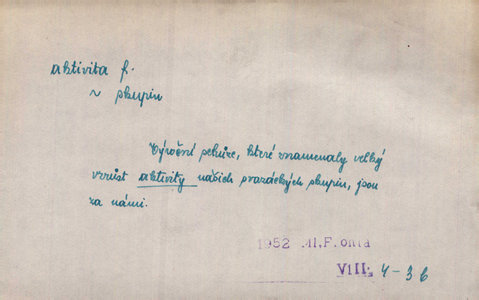 aktivita f.
~ skupin
Výroční schůze, které znamenaly velký
vzrůst aktivity našich svazáckých skupin, jsou
za námi.
1952 Ml.F.onta
VIII, 4-36